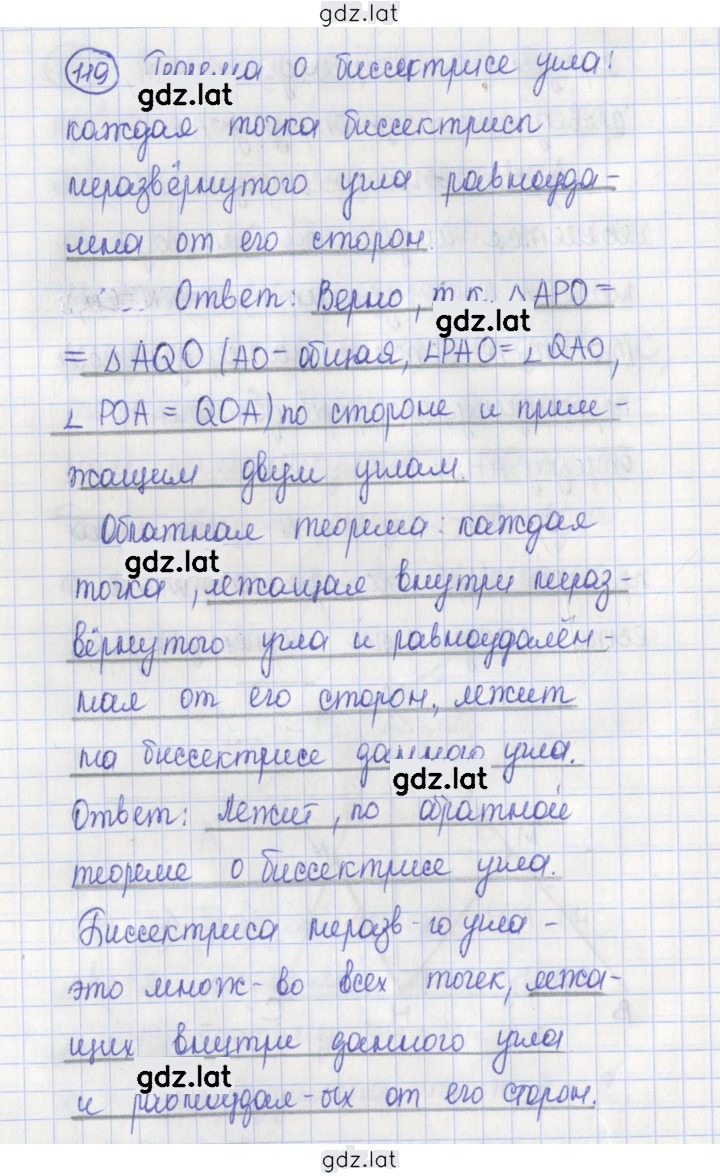 gdz.lat
119 Теорема о биссектрисе угла:
gdz.lat
каждая точка биссектрисы
неразвёрнутого угла равноуда-
лена от его сторон.
Ответ: Верно, т.к. △APO =
gdz.lat
= △AQO (AO - общая, ∠PAO = ∠QAO,
∠POA = QOA) по стороне и приле-
жащим двум углам.
Обратная теорема: каждая
gdz.lat
точка, лежащая внутри нераз-
вёрнутого угла и равноудалён-
ная от его сторон, лежит
на биссектрисе данного угла.
gdz.lat
Ответ: Лежит, по обратной
теореме о биссектрисе угла.
Биссектриса неразв-го угла -
это множ-во всех точек, лежа-
щих внутри данного угла
gdz.lat
и равноудал-ых от его сторон.
gdz.lat